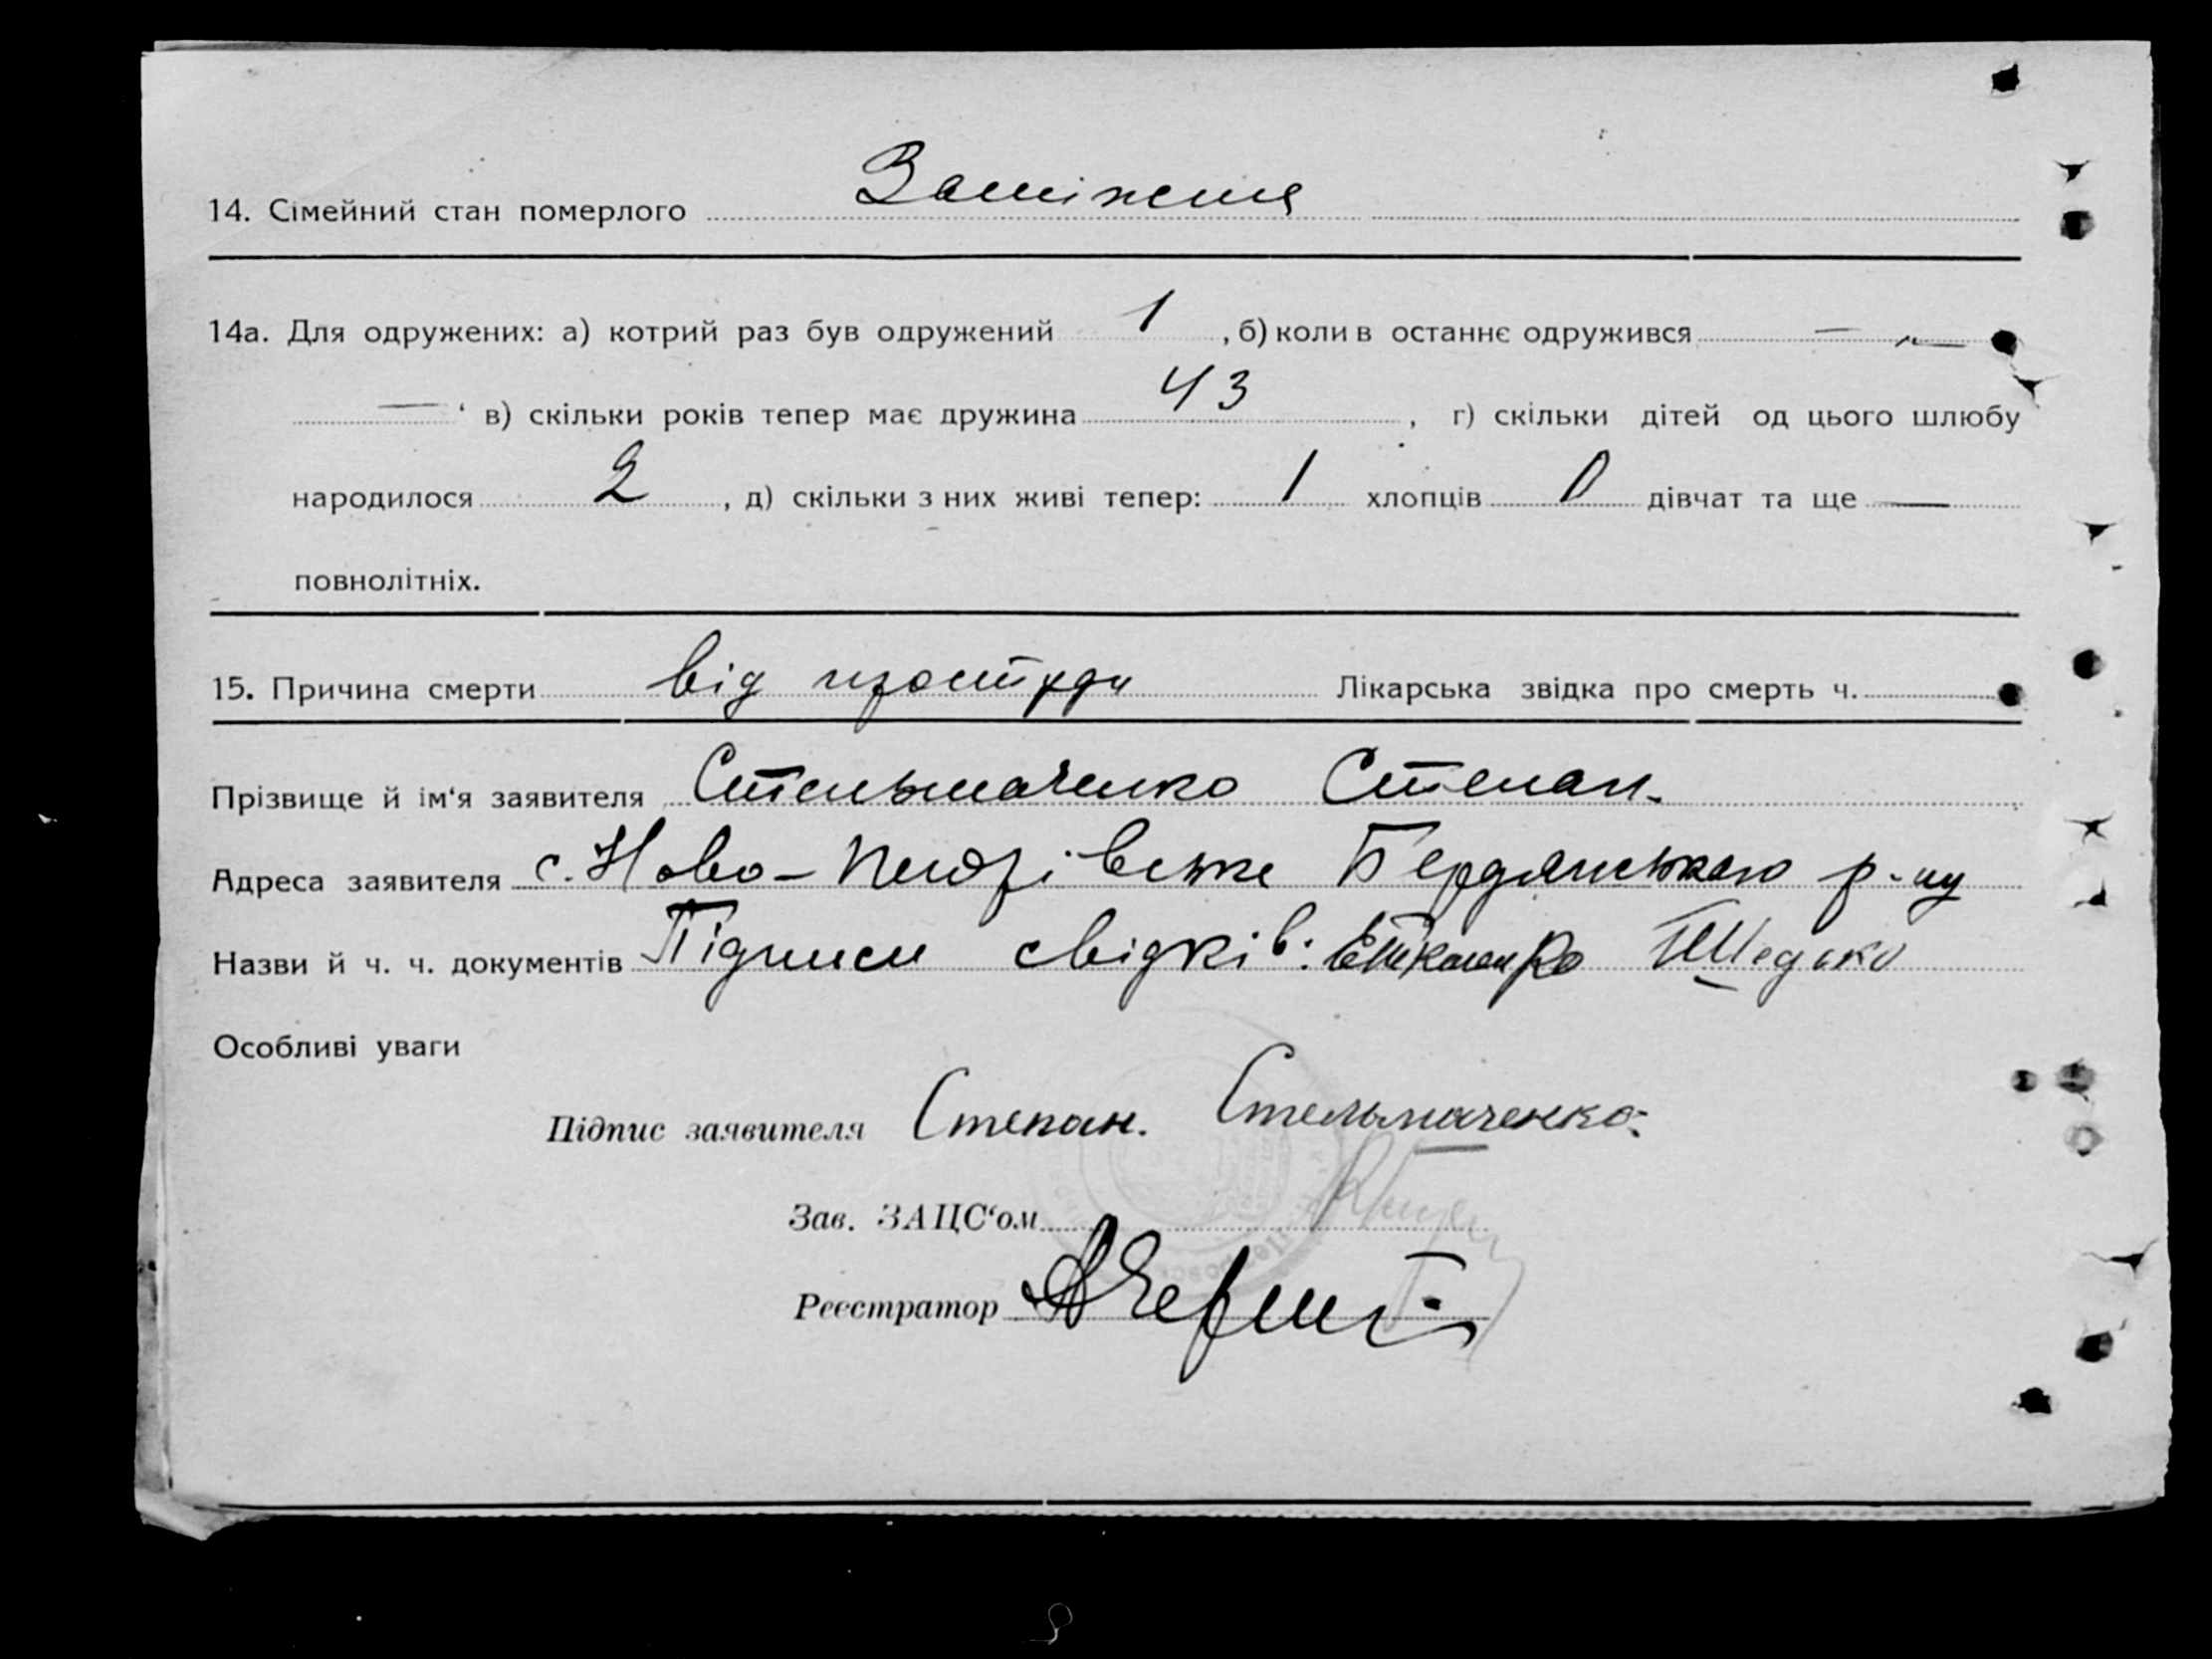 14. Сімейний стан померлого Заміжня
14а. Для одружених: а) котрий раз був одружений 1 , б) коли в останнє одружився — " —
— ‘ в) скільки років тепер має дружина 43 , г) скільки дітей од цього шлюбу
народилося 2 , д) скільки з них живі тепер: 1 хлопців 0 дівчат та ще —
повнолітніх.
15. Причина смерти від простуди Лікарська звідка про смерть ч.
Прізвище й ім‘я заявителя Стельмаченко Степан.
Адреса заявителя с. Ново- Бердянського р-ну
Назви й ч. ч. документів Підписи свідків:
Особливі уваги
Підпис заявителя Степан. Стельмаченко
Зав. ЗАЦС‘ом
Реєстратор